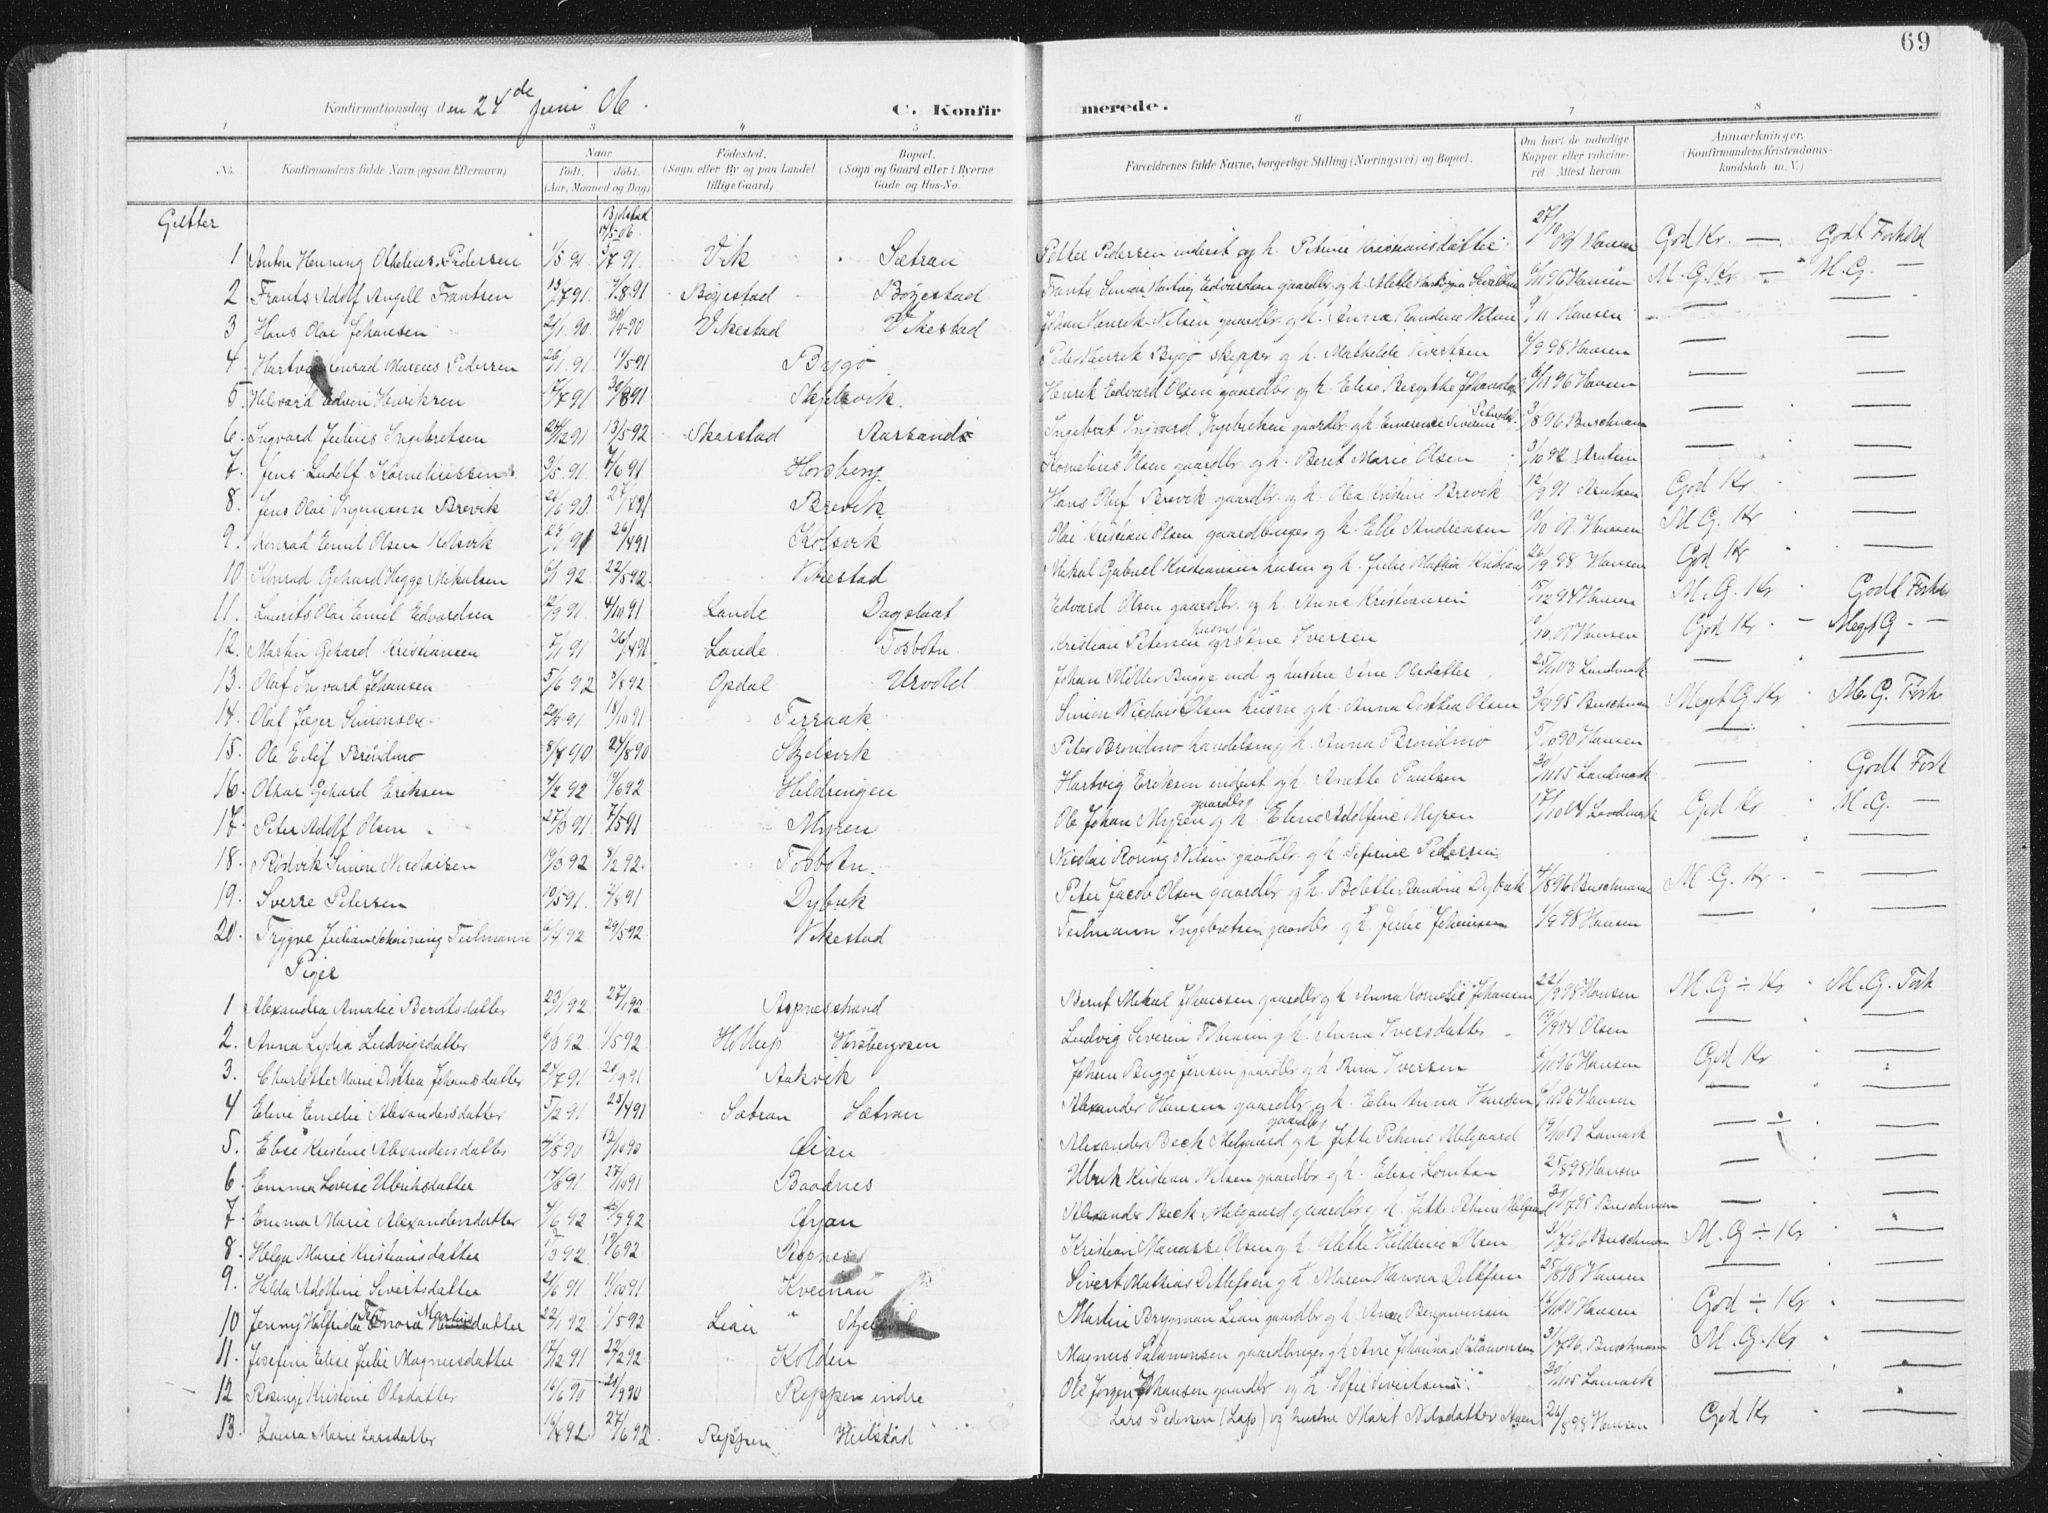 69
Konfirmationsdag den 24de Juni 06. C. Konfirmerede.
1 2 3 4 5 6 7 8
No. Konfirmandens fulde Navn (ogsaa Efternavn) Naar født. døbt. (Aar, Maaned og Dag) Fødested. (Sogn eller By og paa Landet tillige Gaard) Bopæl. (Sogn og Gaard eller i Byerne Gade og Hus-No. Forældrenes fulde Navne, borgerlige Stilling (Næringsvei) og Bopæl. Om havt de naturlige Kopper eller vakcineret. Attest herom. Anmærkninger. (Konfirmandens Kristendomskundskab m. V.)
Gutter
1 Anton Henning Pedersen 1/5 91 5/7 91 Vik Sætran Petter Pedersen inderst og h. Petrine Kristiansdatter Hansen God Kr. — Godt Forhold
2 Frants Adolf Angell Frantsen 13/7 91 Bøgestad Bøgestad Frants Simon Hartvig Edvardsen gaardbr. og h. 6/11 96 Hansen M.G. Kr — M.G. —
3 Hans Olai Johansen 2/1 90 Vikestad Vikestad Johan Henrik Nilsen gaardbr. og h. Anna Randine Nilsen Hansen — —
4. Hartvig Konrad Marcus Pedersen 26/1 91 14/5 91 Bygø Peder Henrik Bygø skipper og h. Mathilde Sivertsen 6/9 98 Hansen — —
5. Helvard Edvin Henriksen 17/7 91 30/8 91 Skjelsvik Henrik Edvard Olsen gaardbr. og h. Elise Bergitte 6/11 96 Hansen — —
6. Ingvard Julius Ingebretsen 24/12 91 13/5 92 Skarstad Aarsand Ingebret Ingvard Ingebretsen gaardbr. og h. Emerence Severine 3/8 96 Buschmann — —
7. Jens Ludolf Korneliussen 3/5 91 7/6 91 Horsberg Kornelius Olsen gaardbr og h. Beret Marie Olsen 3/10 92 — —
8. Jens Olai Ingemann Brevik Brevik Hans Olaf Brevik gaardbr. og h. Olea Kristine Brevik 12/9 91 God Kr —
9. Konrad Emil Olsen Kolsvik 26/4 91 Kolsvik Olai Kristian Olsen gaardbruger og h. Elle Andreasen Hansen M.G. Kr —
10 Konrad Gehard Hegge Nikolaisen 6/1 92 22/5 92 Vikestad Nikal Gabriel Kristiansen og h. Julie 26/9 98 Hansen God Kr —
11. Laurits Olai Emil Edvardsen 12/9 91 4/10 91 Lande Dagslaat Edvard Olsen gaardbr. og h. Anna Kristiansen 15/12 94 Hansen M.G. Kr Godt Forhold
12. Martin Gehard Kristiansen 7/1 91 26/4 91 Lande Tosbotn Kristian Petersen husm og Stine Iversen Hansen God Kr — Meget G. —
13. Olaf Ingvard Johansen 5/6 92 7/8 92 Opdal Urvold Johan Møller Bugge ind og hustru Ane Olsdatter Landmark — —
14. Olaf Jæger Simonsen 18/10 91 Terraak Simon Nicolai Olsen husm og h. Anna Dorthea Olsen 3/9 95 Buschman Meget G. Kr M.G. Forh
15. Ole Eilif Brøndmo 8/7 90 24/8 90 Skjelsvik Peter Brøndmo handelsm og h. Anna Brøndmo 5/10 90 Hansen — —
16. Oskar Gehard Eriksen 4/2 92 19/6 92 Heldringen Hartvig Eriksen inderst og h. Anette Paulsen Landmark — Godt Forh
17. Peter Adolf Olsen 27/3 91 7/5 91 Myren Ole Johan Myren gaardbr og h. Eline Adolfine Myren 17/10 04 Landmark God Kr M.G. —
18. Rødvik Simon Nicolaisen 19/3 92 Tosbotn Nicolai Roring Nilsen gaardbr. og h. Sefirine Pedersen — —
19. Sverre Petersen 19/5 91 2/8 91 Dybvik Peter Jacob Olsen gaardbr og h. Bolette Randine Dybvik 4/8 96 Buschmann M.G. Kr — —
20. Trygve Julian Schøning Teilmann 6/4 92 29/5 92 Vikestad Teilmann Ingebretsen gaardbr. og h. Julie Johansen 1/9 98 Hansen — —
Piger
1 Alexandra Amalie Berntsdatter 23/1 92 Aspnesstrand Bernt Mikal Johansen gaardbr og h. Anna Kornelie Johansen 22/9 98 Hansen M.G ÷ Kr M.G. Forh
2. Anna Lydia Ludvigsdatter 6/3 92 1/5 92 Holstrup Horsbergosen Ludvig Severin Tobiasen og h. Anna Iversdatter Olsen — —
3. Charlotte Marie Dortea Johansdatter 24/7 91 20/9 91 Aakvik Johan Bugge Jensen gaardbr og h. Trina Iversen 6/11 96 Hansen God Kr —
4 Eline Emelie Alexandersdatter 5/2 91 25/4 91 Sætran Sætran Alexander Hansen gaardbr. og h. Elen Anna Hansen 6/11 96 Hansen — —
5. Elise Kristine Alexandersdatter 12/10 90 Øian Alexander Beck Melgaard gaardbr og h. Jette Petrine Melgaard Lamark — ÷ —
6. Emma Lovise Ulriksdatter 17/8 91 Baadnes Ulrik Kristian Nilsen gaardbr. og h. Elise Lorntsen 25/8 98 Hansen — —
7. Emma Marie Alexandersdatter 4/6 92 Øyan Alexander Beck Melgaard gaardbr og h. Jette Petrine Melgaard Buschmann — —
8. Helga Marie Kristiansdatter 1/3 92 19/6 92 Repnes Kristian Manasse Olsen og h. Jette Heldrine Olsen 31/7 96 Buschman M.G ÷ Kr —
9. Hilda Adolfine Sivertsdatter 2/6 91 11/10 91 Kveinan Sivert Mathias Ditlefsen og h. Maren Hanna Ditlefsen 25/8 98 Hansen — —
10 Jenny Halfrida Martinsdatter 22/1 92 1/5 92 Lian " Martin Brygman Lian gaardbr og h. Anna Benjaminsen Hansen God ÷ Kr —
11. Josefine Elise Julie Magnusdatter 17/12 91 22/2 92 Kolden Magnus Salamonsen gaardbruger og h. Ane Johanna Salamonsen 31/7 96. Buschmann M.G. Kr —
12 Rosine Kristine Olsdatter 16/6 90 21/9 90 Reppen indre Ole Jørgen Johansen gaardbr og h. Sofie Sivertsen Lamark — —
13. Laura Marie Larsdatter 16/4 92 27/6 92 Reppen Heilstad Lars Pedersen (Lap) og hustru Marit Nilsdatter 26/8 98 Hansen God Kr —